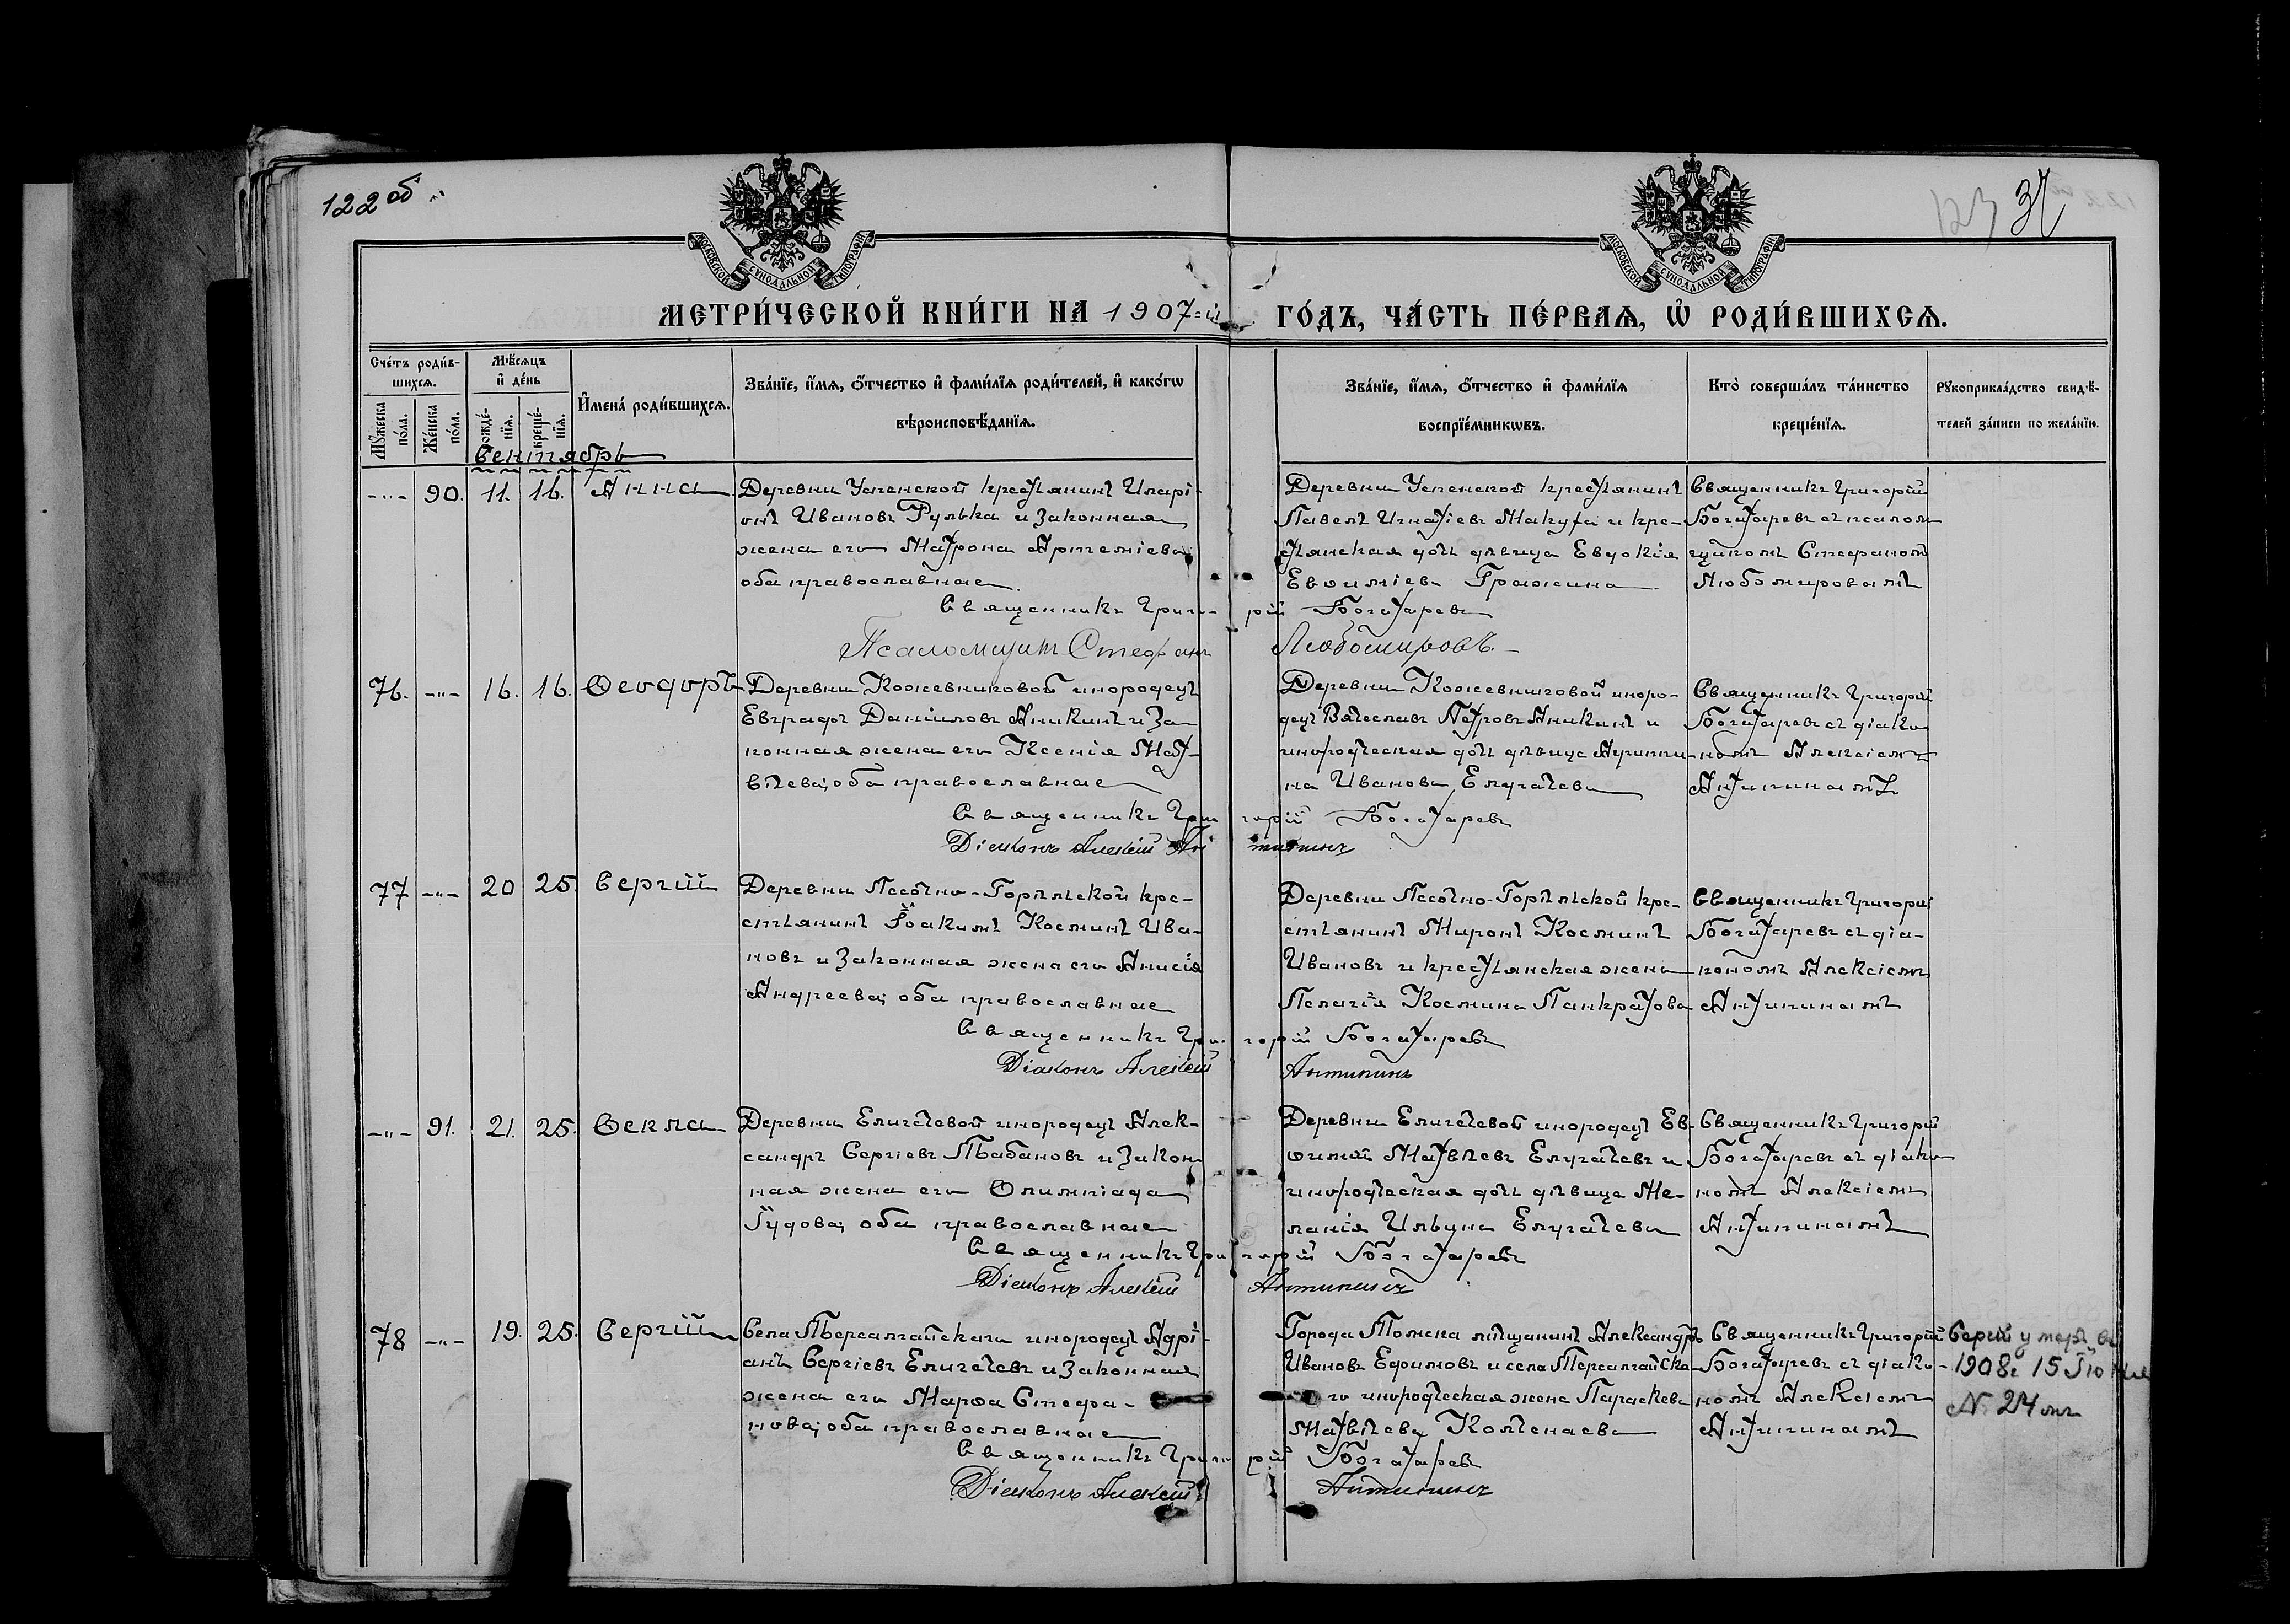 122 об
123 31
МОСКОВСКОЙ СѴНОДАЛЬНОЙ ТИПОГРАФІИ
МОСКОВСКОЙ СѴНОДАЛЬНОЙ ТИПОГРАФІИ
МЕТРИ́ЧЕСКОЙ КНИ́ГИ НА 1907=й ГО́ДЪ, ЧА́СТЬ ПЕ́РВАѦ, Ѡ҆ РОДИ́ВШИХСѦ.
Сче́тъ роди́в-
шихсѧ.
Мꙋ́жеска по́ла.
Же́нска по́ла.
Мѣ́сѧцъ
и҆ де́нь
рожде́-
нїѧ.
креще́-
нїѧ.
И҆мена́ роди́вшихсѧ.
Зва́нїе, и҆́мѧ, ѻ҆́тчество и҆ фами́лїѧ роди́телей, и҆ како́гѡ
вѣроисповѣ́данїѧ.
Зва́нїе, и҆́мѧ, ѻ҆́тчество и҆ фами́лїѧ
воспрїе́мникѡвъ.
Кто̀ соверша́лъ та́инство
креще́нїѧ.
Рꙋкоприкла́дство свидѣ́-
телей за́писи по жела́нїю.
Сентябрь
-"- 90. 11. 16. Анна
Деревни Успенской крестьянинъ Иларі-
онъ Ивановъ Рулька и законная
жена его Матрона Артеміева;
оба православные
Деревни Успенской крестьянинъ
Павелъ Игнатіевъ Макута и кре-
стьянская дочь дѣвица Евдокія
Евѳиміева Гражина
Священникъ Григорій
Богатыревъ съ псалом-
щикомъ Стефаномъ
Любомировымъ
Священникъ Григорій Богатыревъ
Псаломщикъ Стефанъ Любомировъ.
76. -"- 16. 16. Ѳеодоръ
Деревни Кожевниковой инородецъ
Евграфъ Даніиловъ Аникинъ и за-
конная жена его Ксенія Мат-
вѣева; оба православные
Деревни Кожевниковой иноро-
децъ Вячеславъ Петровъ Аникинъ и
инородческая дочь дѣвица Агриппи-
на Иванова Елугачева
Священникъ Григорій
Богатыревъ съ діако-
номъ Алексіемъ
Антипинымъ
Священникъ Григорій Богатыревъ
Діаконъ Алексій Антипинъ
77 -"- 20 25 Сергій
Деревни Песочно-Горѣльской кре-
стьянинъ Іоакимъ Косминъ Ива-
новъ и законная жена его Анисія
Андреева; оба православные
Деревни Песочно-Горѣльской кре-
стьянинъ Миронъ Косминъ
Ивановъ и крестьянская жена
Пелагія Космина Панкратова
Священникъ Григорій
Богатыревъ съ діа-
кономъ Алексіемъ
Антипинымъ
Священникъ Григорій Богатыревъ
Діаконъ Алексій Антипинъ
-"- 91. 21. 25. Ѳекла
Деревни Елигачевой инородецъ Алек-
сандръ Сергіевъ Табановъ и закон-
ная жена его Олимпіада
Іудова; оба православные
Деревни Елигачевой инородецъ Ев-
ѳимій Матвѣевъ Елугачевъ и
инородческая дочь дѣвица Ме-
ланія Ильина Елугачева
Священникъ Григорій
Богатыревъ съ діако-
номъ Алексіемъ
Антипинымъ
Священникъ Григорій Богатыревъ
Діаконъ Алексій Антипинъ
78 -"- 19. 25. Сергій
Села Персалтайскаго инородецъ Адрі-
анъ Сергіевъ Елигачевъ и законная
жена его Марѳа Стефа-
нова; оба православные
Города Томска мѣщанинъ Александръ
Ивановъ Ефимовъ и села Персалтайска-
го инородческая жена Параскева
Матвѣева
Священникъ Григорій
Богатыревъ съ діако-
номъ Алексіемъ
Антипинымъ
Сергій умеръ
1908г 15 Іюня
№ 24
Священникъ Григорій Богатыревъ
Діаконъ Алексій Антипинъ